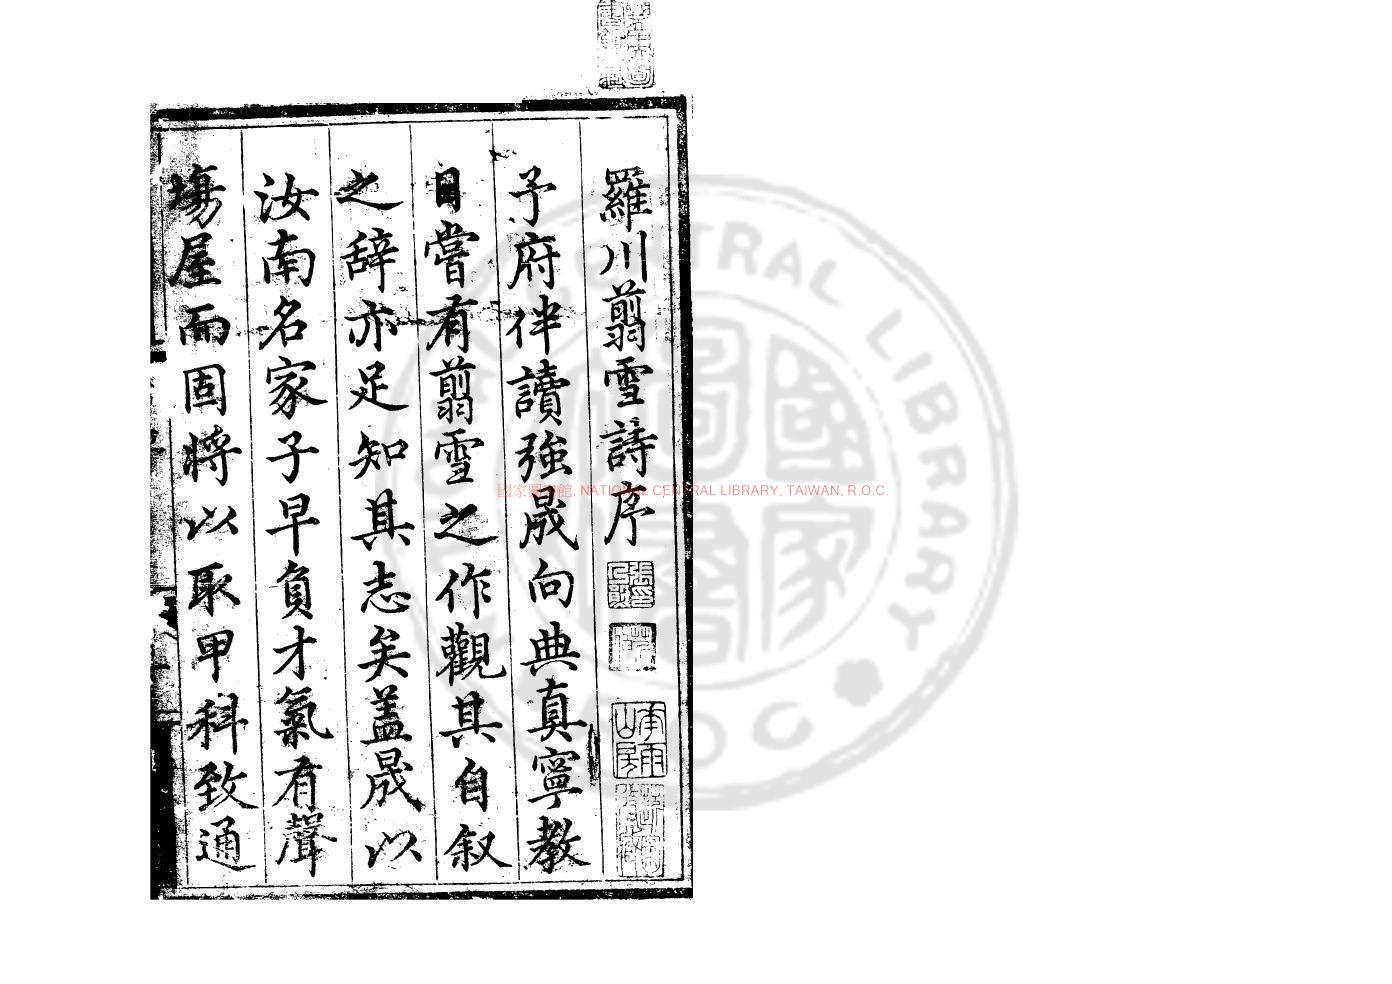 羅川翦雪詩序
予府伴讀強晟向典真寧教
目嘗有翦雪之作觀其自叙
之辞亦足知其志矣盖晟以
汝南名家子早負才氣有聲
塲屋而固將以取甲科致通
國家圖書館, NATIONAL CENTRAL LIBRARY, TAIWAN, R.O.C.